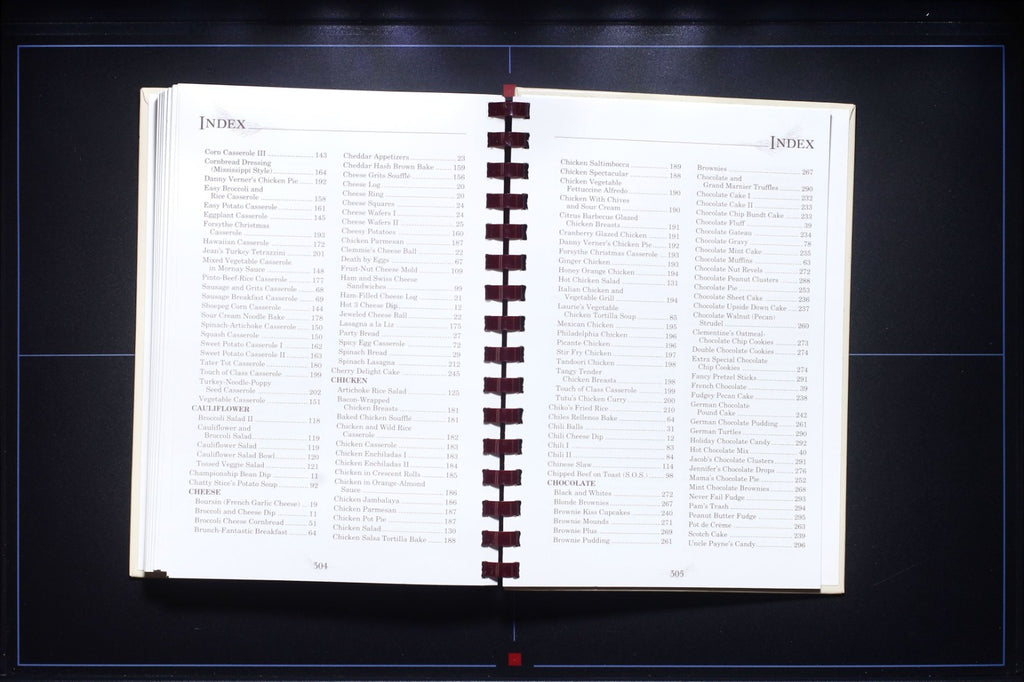 INDEX
Corn Casserole III 143
Cornbread Dressing
(Mississippi Style) 164
Danny Verner's Chicken Pie 192
Easy Broccoli and
Rice Casserole 158
Easy Potato Casserole 161
Eggplant Casserole 145
Forsythe Christmas
Casserole 193
Hawaiian Casserole 172
Jean's Turkey Tetrazzini 201
Mixed Vegetable Casserole
in Mornay Sauce 148
Pinto-Beef-Rice Casserole 177
Sausage and Grits Casserole 68
Sausage Breakfast Casserole 69
Shoepeg Corn Casserole 144
Sour Cream Noodle Bake 178
Spinach-Artichoke Casserole 150
Squash Casserole 150
Sweet Potato Casserole I 162
Sweet Potato Casserole II 163
Tater Tot Casserole 180
Touch of Class Casserole 199
Turkey-Noodle-Poppy
Seed Casserole 202
Vegetable Casserole 151
CAULIFLOWER
Broccoli Salad II 118
Cauliflower and
Broccoli Salad 119
Cauliflower Salad 119
Cauliflower Salad Bowl 120
Tossed Veggie Salad 121
Championship Bean Dip 11
Chatty Stice's Potato Soup 92
CHEESE
Boursin (French Garlic Cheese) 19
Broccoli and Cheese Dip 11
Broccoli Cheese Cornbread 51
Brunch-Fantastic Breakfast 64
Cheddar Appetizers 23
Cheddar Hash Brown Bake 159
Cheese Grits Soufflé 156
Cheese Log 20
Cheese Ring 20
Cheese Squares 24
Cheese Wafers I 24
Cheese Wafers II 25
Cheesy Potatoes 160
Chicken Parmesan 187
Clemmie's Cheese Ball 22
Death by Eggs 67
Fruit-Nut Cheese Mold 109
Ham and Swiss Cheese
Sandwiches 99
Ham-Filled Cheese Log 21
Hot 3 Cheese Dip 12
Jeweled Cheese Ball 22
Lasagna a la Liz 175
Party Bread 27
Spicy Egg Casserole 72
Spinach Bread 29
Spinach Lasagna 212
Cherry Delight Cake 245
CHICKEN
Artichoke Rice Salad 125
Bacon-Wrapped
Chicken Breasts 181
Baked Chicken Soufflé 181
Chicken and Wild Rice
Casserole 182
Chicken Casserole 183
Chicken Enchiladas I 183
Chicken Enchiladas II 184
Chicken in Crescent Rolls 185
Chicken in Orange-Almond
Sauce 186
Chicken Jambalaya 186
Chicken Parmesan 187
Chicken Pot Pie 187
Chicken Salad 130
Chicken Salsa Tortilla Bake 188
504
INDEX
Chicken Saltimbocca 189
Chicken Spectacular 188
Chicken Vegetable
Fettuccine Alfredo 190
Chicken With Chives
and Sour Cream 190
Citrus Barbecue Glazed
Chicken Breasts 191
Cranberry Glazed Chicken 191
Danny Verner's Chicken Pie 192
Forsythe Christmas Casserole 193
Ginger Chicken 193
Honey Orange Chicken 194
Hot Chicken Salad 131
Italian Chicken and
Vegetable Grill 194
Laurie's Vegetable
Chicken Tortilla Soup 85
Mexican Chicken 195
Philadelphia Chicken 196
Picante Chicken 196
Stir Fry Chicken 197
Tandoori Chicken 198
Tangy Tender
Chicken Breasts 198
Touch of Class Casserole 199
Tutu's Chicken Curry 200
Chiko's Fried Rice 210
Chiles Rellenos Bake 64
Chili Balls 31
Chili Cheese Dip 12
Chili I 83
Chili II 84
Chinese Slaw 114
Chipped Beef on Toast (S.O.S.) 98
CHOCOLATE
Black and Whites 272
Blonde Brownies 267
Brownie Kiss Cupcakes 240
Brownie Mounds 271
Brownie Plus 269
Brownie Pudding 261
Brownies 267
Chocolate and
Grand Marnier Truffles 290
Chocolate Cake I 232
Chocolate Cake II 233
Chocolate Chip Bundt Cake 233
Chocolate Fluff 39
Chocolate Gateau 234
Chocolate Gravy 78
Chocolate Mint Cake 235
Chocolate Muffins 63
Chocolate Nut Revels 272
Chocolate Peanut Clusters 288
Chocolate Pie 253
Chocolate Sheet Cake 236
Chocolate Upside Down Cake 237
Chocolate Walnut (Pecan)
Strudel 260
Clementine's Oatmeal-
Chocolate Chip Cookies 273
Double Chocolate Cookies 274
Extra Special Chocolate
Chip Cookies 274
Fancy Pretzel Sticks 291
French Chocolate 39
Fudgey Pecan Cake 238
German Chocolate
Pound Cake 242
German Chocolate Pudding 261
German Turtles 290
Holiday Chocolate Candy 292
Hot Chocolate Mix 40
Jacob's Chocolate Clusters 291
Jennifer's Chocolate Drops 276
Mama's Chocolate Pie 252
Mint Chocolate Brownies 268
Never Fail Fudge 293
Pam's Trash 294
Peanut Butter Fudge 295
Pot de Crème 263
Scotch Cake 239
Uncle Payne's Candy 296
505